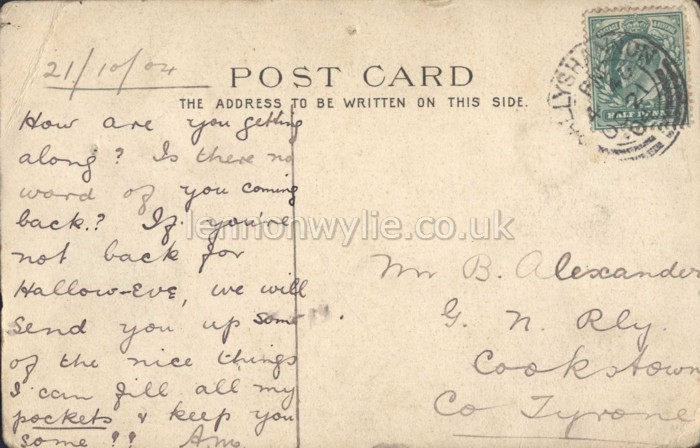 21/10/04
POST CARD
THE ADDRESS TO BE WRITTEN ON THIS SIDE.
HALF PENNY
How are you getting
along? Is there no
word of you coming
back? If you're
not back for
Hallow-Eve, we will
send you up some
of the nice things
I can fill all my
pockets & keep you
some??
lennonwylie.co.uk
Mr B. Alexander
G. N. Rly.
Cookstown
Co Tyrone